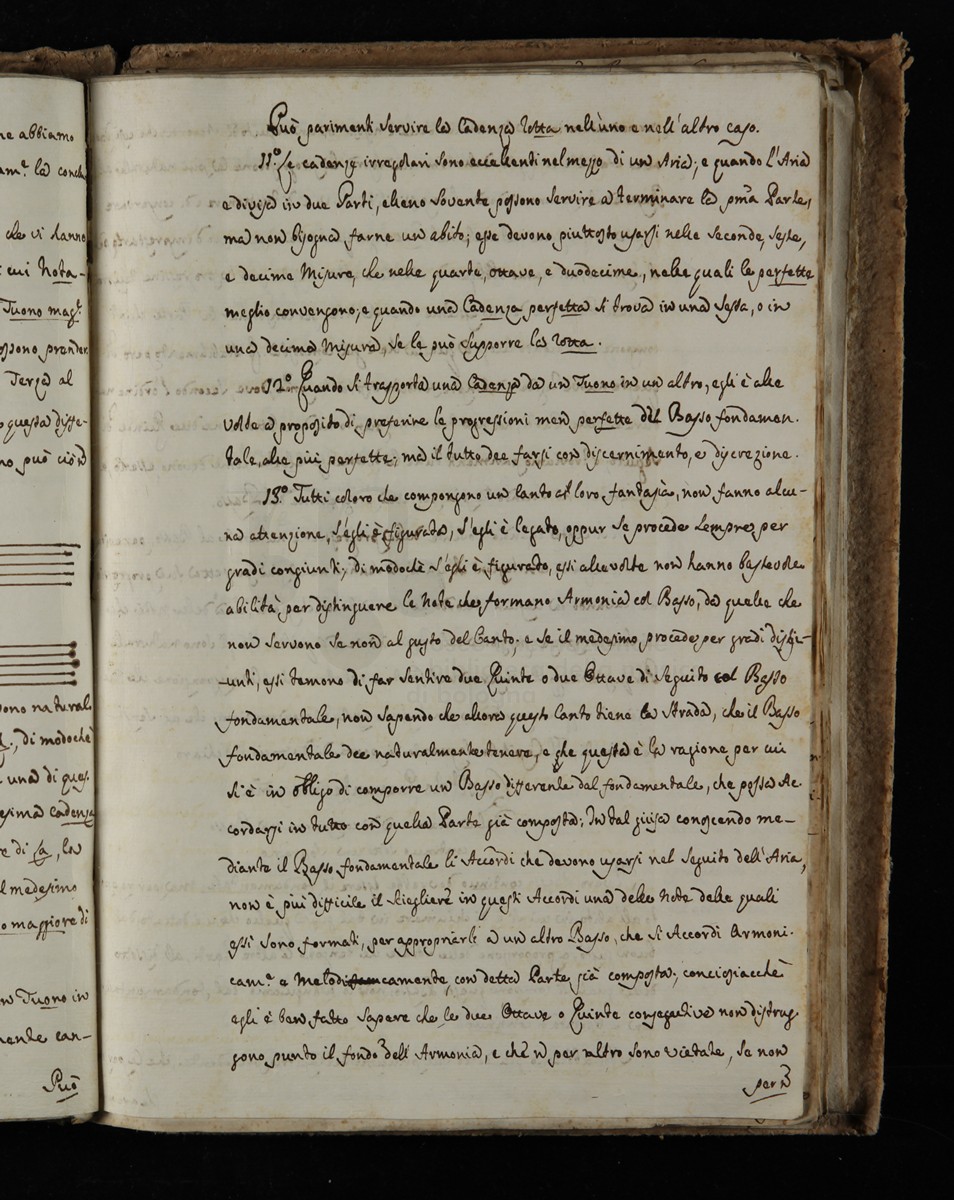 ne abbiamo
am.e la conclu
che vi hanno
cui Nota-
Tuono mag.e
ossono prender
Terza al
questa diffe-
no può ciò
ono natural
di modochè
una di ques
esima cadenza
e di la, la
l medesimo
o maggiore di
n Tuono in
mente can-
Può
Può parimenti servire la Cadenza rotta nell'uno e nell'altro caso.
11.o Le cadenze irregolari sono eccellenti nel mezzo di un Aria; e quando l'Aria
e divisa in due Parti, elleno sovente possono servire a terminare la pma Parte,
ma non bisogna farne un abito; esse devono piuttosto usarsi nelle Seconde, Seste,
e decime Misure, che nelle quarte, ottave, e duodecime, nelle quali le perfette
meglio convengono; e quando una Cadenza perfetta si trova in una Sesta, o in
una decima Misura, se le può supporre la rotta.
12.o Quando si trasporta una Cadenza da un Tuono in un altro, egli è alle
volte a proposito di preferire le progressioni men perfette del Basso fondamen.
tale, alle più perfette; ma il tutto dee farsi con discernimento, e discrezione.
13.o Tutti coloro che compongono un Canto al loro fantasia, non fanno alcu-
na attenzione, s'egli è figurato, s'egli è legato, oppur se procede sempre per
gradi congiunti; di modochè s'egli è figurato, essi alle volte non hanno bastevole
abilità, per distinguere le Note che formano Armonia col Basso, da quelle che
non servono se non al gusto del Canto; e se il medesimo, procede per gradi disgi-
-unti, essi temono di far sentire due Quinte o due Ottave di seguito col Basso
fondamentale, non sapendo che allora questo Canto tiene la strada, che il Basso
fondamentale dee naturalmente tenere, e che questa è la ragione per cui
si è in obbligo di comporre un Basso differente dal fondamentale, che possa Ac
cordarsi in tutto con quella Parte già composta; In tal guisa conoscendo me-
diante il Basso fondamentale li Accordi che devono usarsi nel seguito dell'Aria,
non è più difficile il sciegliere in questi Accordi una delle Note delle quali
essi sono formati, per appropriarle a un altro Basso, che si Accordi Armoni.
cam.e e melodicamente, con detta Parte già composta; conciosiacchè
egli è ben fatto sapere che le due Ottave o Quinte consegutive non distrug
gono punto il fondo dell'Armonia, e che per altro sono vietate, se non
per